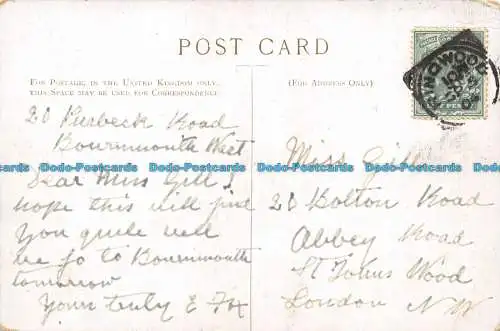 POST CARD
FOR POSTAGE, IN THE UNITED KINGDOM ONLY,
THIS SPACE MAY BE USED FOR CORRESPONDENCE.
(FOR ADDRESS ONLY)
20 Purbeck Road
Bournmouth West
Dear Miss Gill I
hope this will find
you quite well
we go to Bournmouth
tomorrow
Yours truly E Fox
Miss Gill
20 Bolton Road
Abbey Road
St Johns Wood
London N W
Dodo-Postcards Dodo-Postcards Dodo-Postcards Dodo-Postcards